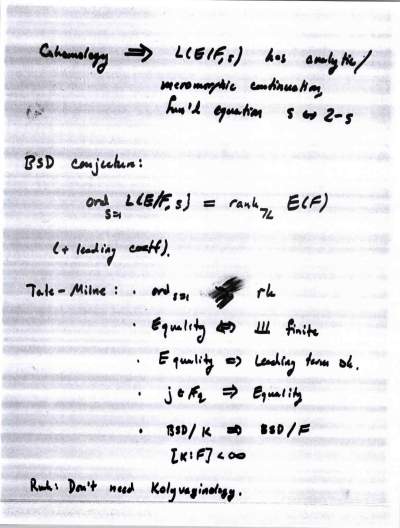 Cohomology ⟹ L(E/F,s) has analytic/
meromorphic continuation,
fun'l equation s ↔ 2-s
BSD conjecture:
ord_{s=1} L(E/F,s) = rank_ℤ E(F)
(+ leading coeff).
Tate-Milne: · ord_{s=1} rk
· Equality ⟺ Ш finite
· Equality ⟹ Leading term ok.
· j ∈ F_q ⟹ Equality
· BSD/K ⟹ BSD/F
[K:F] < ∞
Rmk: Don't need Kolyvaginology.